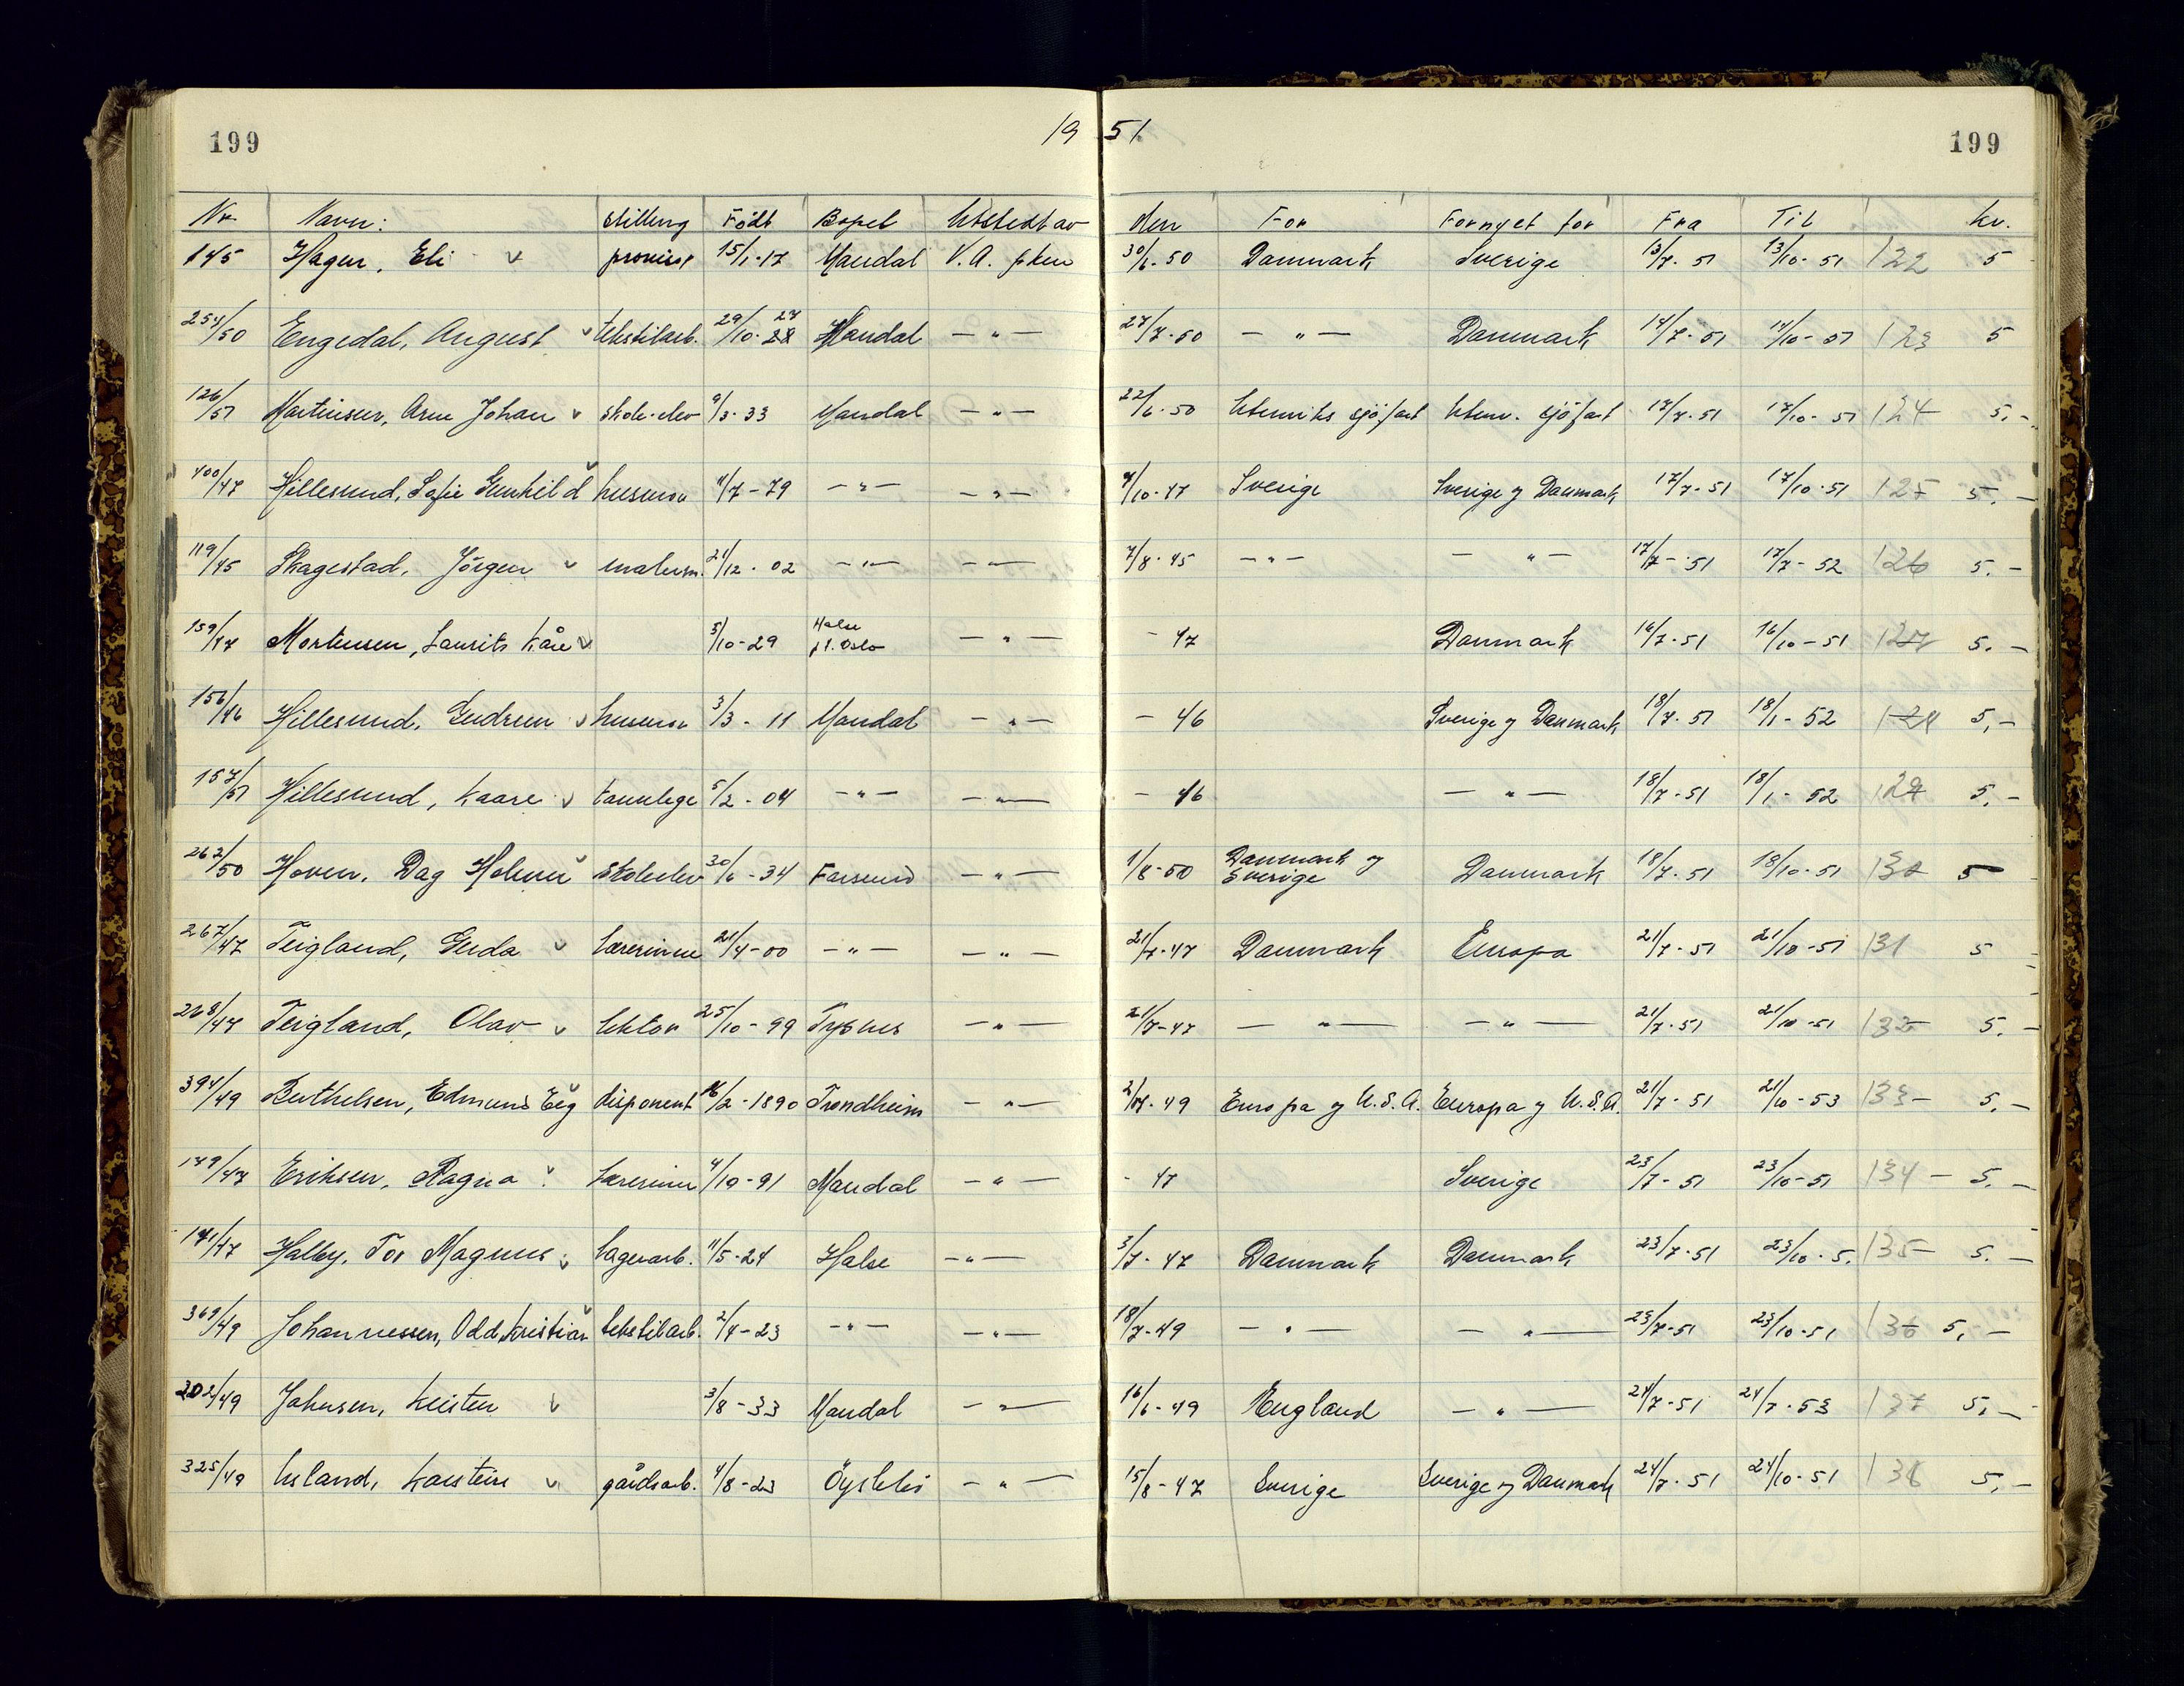 199 1951 199
Nr. Navn: Stilling Født Bopel Utstedt av den For Fornyet for Fra Til kr.
145 Hagen, Eli v 15/1-17 Mandal V.A. p.ktr 30/6-50 Danmark Sverige 13/7-51 13/10-51 122 5
254/50 Engedal, August v tekstilarb. 29/10-28 27 Mandal — " — 27/7-50 — " — Danmark 14/7-51 14/10-51 123 5
126/51 Martinsen, Arne Johan v skole-elev 9/3-33 Mandal — " — 22/6-50 Utenriks sjöfart Utenr. sjöfart 17/7-51 17/10-51 124 5,-
400/47 Hillesund, Sofie Gunhild v husmor 11/7-79 — " — — " — 9/10-47 Sverige Sverige og Danmark 17/7-51 17/10-51 125 5,-
119/45 Skagestad, Jörgen v malerm. 21/12-02 — " — — " — 7/8-45 — " — — " — 17/7-51 17/7-52 126 5.-
159/47 Mortensen, Laurits Kåre v 5/10-29 Halse p.t. Oslo — " — - 47 Danmark 16/7-51 16/10-51 127 5.-
156/46 Hillesund, Gudrun v husmor 3/3-11 Mandal — " — - 46 Sverige og Danmark 18/7-51 18/1-52 128 5,-
157/51 Hillesund, Kaare v tannlege 5/2-04 — " — — " — - 46 — " — 18/7-51 18/1-52 129 5,-
262/50 Hoven, Dag v skoleelev 30/6-34 Farsund — " — 1/8-50 Danmark og Sverige Danmark 18/7-51 18/10-51 130 5
267/47 Teigland, Gerda v lærerinne 21/4-00 — " — — " — 21/7-47 Danmark Europa 21/7-51 21/10-51 131 5
268/47 Teigland, Olav v lektor 25/10-99 Tysnes — " — 21/7-47 — " — — " — 21/7-51 21/10-51 132 5.-
394/49 Berthelsen, Edmund Eeg v disponent 16/2-1890 Trondheim — " — Europa og U.S.A. Europa og U.S.A. 21/7-51 21/10-53 133- 5,-
149/47 Eriksen, Ragna v lærerinne 4/10-91 Mandal — " — - 47 Sverige 23/7-51 23/10-51 134- 5.-
171/47 Halby, Tor Magnus v lagerarb. 11/5-24 Halse — " — 3/7-47 Danmark Danmark 23/7-51 23/10-5. 135- 5.-
369/49 Johannessen, Odd Kristian v tekstilarb. 2/4-23 — " — — " — 18/7-49 — " — — " — 23/7-51 23/10-51 136 5,-
202/49 Jahnsen, Kirsten v 3/8-33 Mandal — " — 16/6-49 England — " — 24/7-51 24/7-53 137 5,-
325/49 Usland, Karstein v gårdsarb. 4/8-23 Öyslebö — " — 15/8-47 Sverige Sverige og Danmark 24/7-51 24/10-51 138 5,-